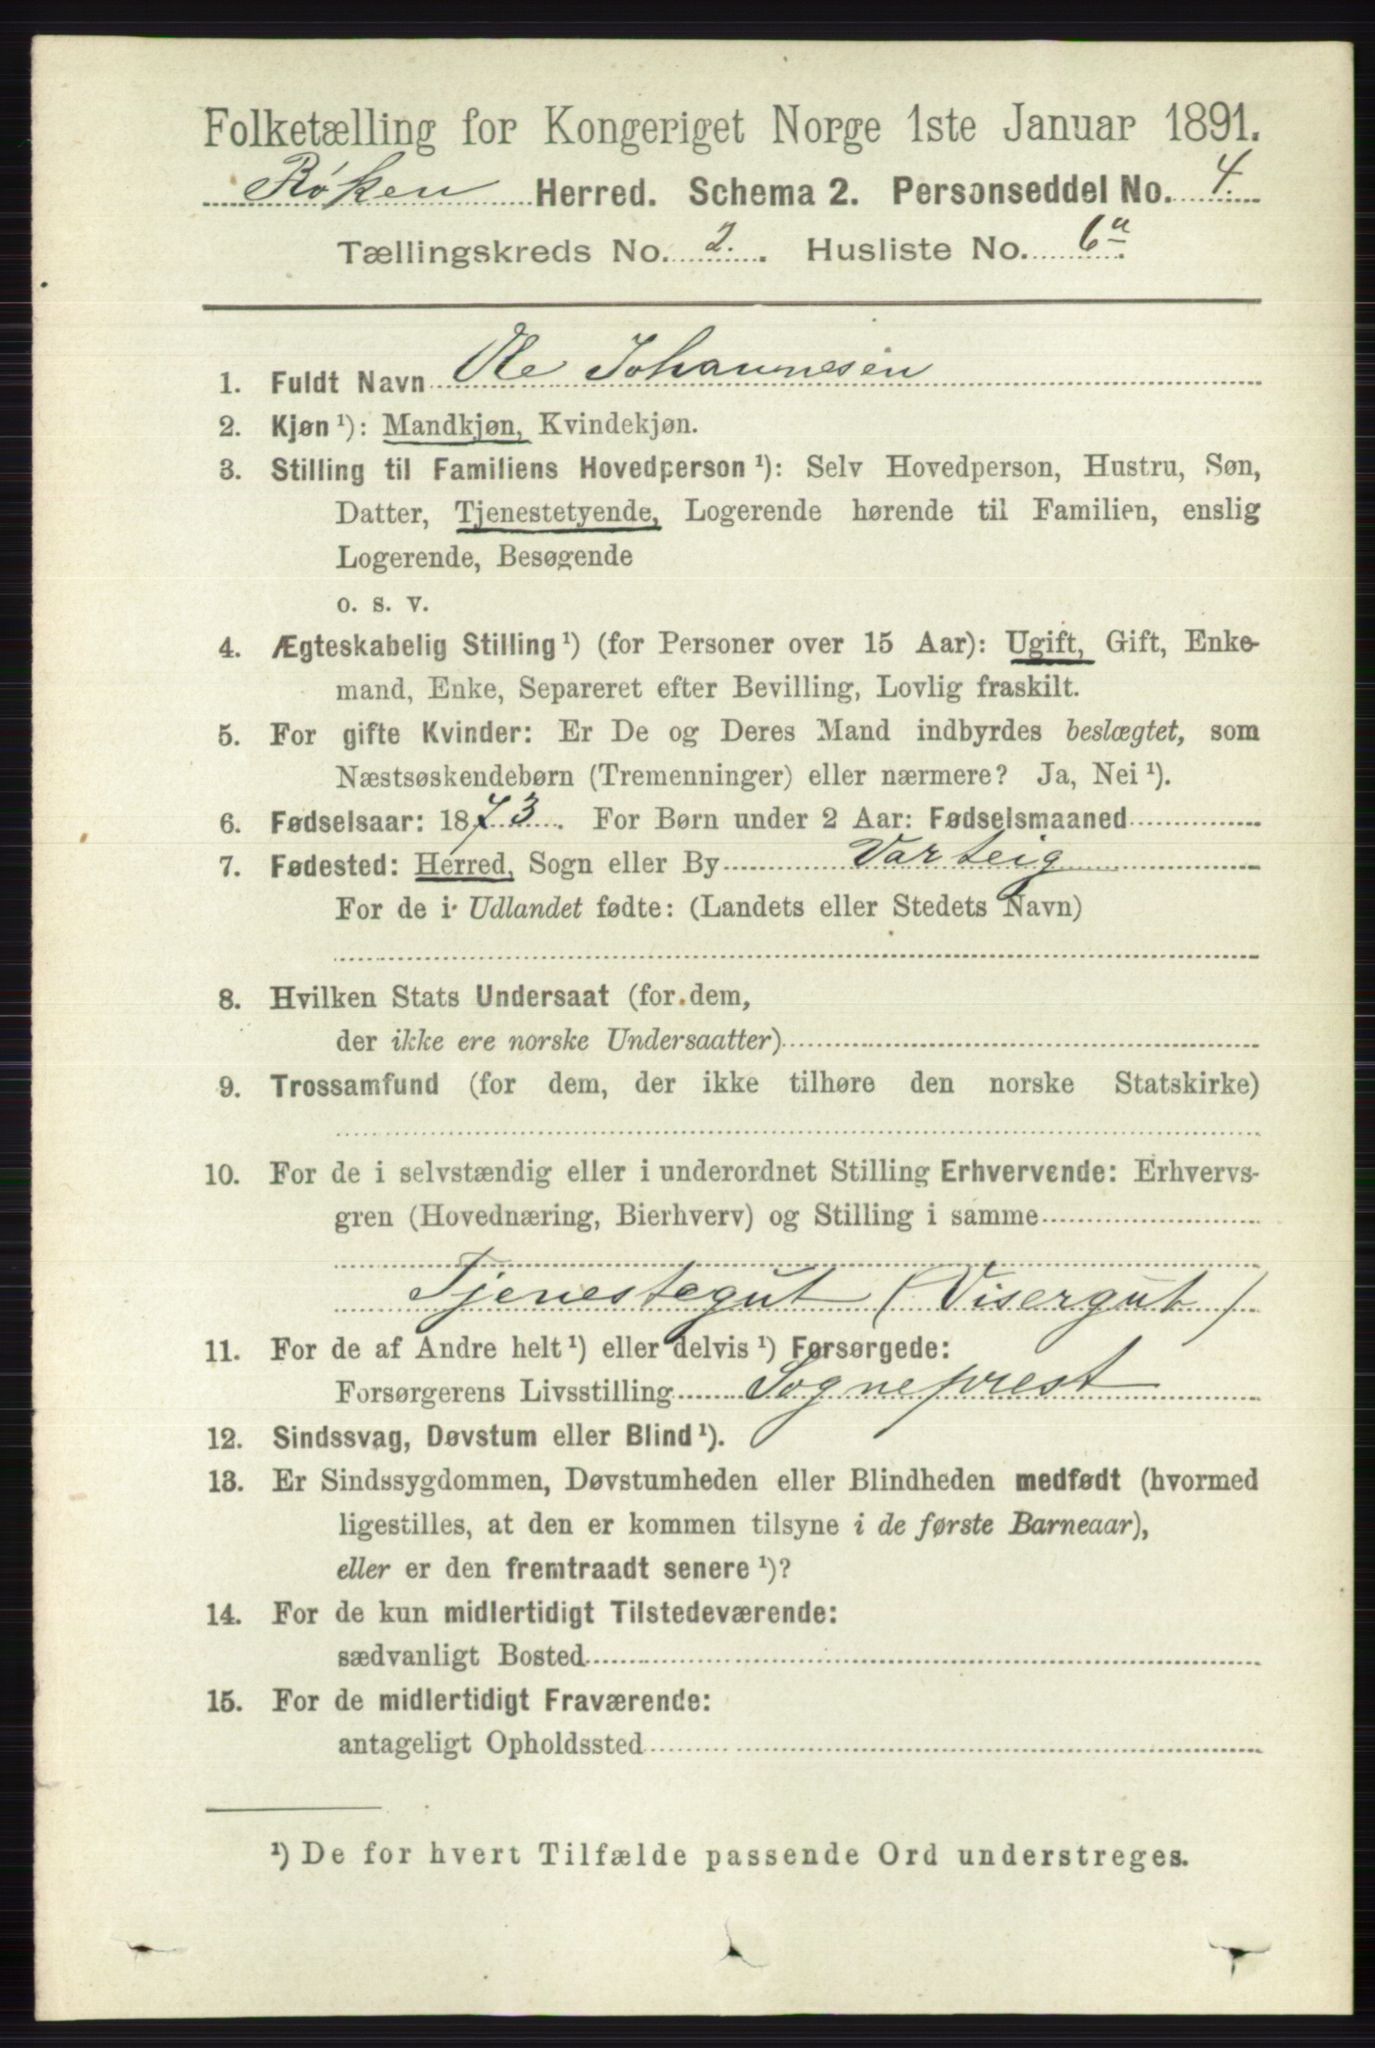 Folketælling for Kongeriget Norge 1ste Januar 1891.
Røken Herred. Schema 2. Personseddel No. 4.
Tællingskreds No. 2. Husliste No. 6a
1. Fuldt Navn Ole Johannesen
2. Kjøn ¹): Mandkjøn, Kvindekjøn.
3. Stilling til Familiens Hovedperson ¹): Selv Hovedperson, Hustru, Søn,
Datter, Tjenestetyende, Logerende hørende til Familien, enslig
Logerende, Besøgende
o. s. v.
4. Ægteskabelig Stilling ¹) (for Personer over 15 Aar): Ugift, Gift, Enke-
mand, Enke, Separeret efter Bevilling, Lovlig fraskilt.
5. For gifte Kvinder: Er De og Deres Mand indbyrdes beslægtet, som
Næstsøskendebørn (Tremenninger) eller nærmere? Ja, Nei ¹).
6. Fødselsaar: 1873. For Børn under 2 Aar: Fødselsmaaned
7. Fødested: Herred, Sogn eller By Varteig
For de i Udlandet fødte: (Landets eller Stedets Navn)
8. Hvilken Stats Undersaat (for dem,
der ikke ere norske Undersaatter)
9. Trossamfund (for dem, der ikke tilhøre den norske Statskirke)
10. For de i selvstændig eller i underordnet Stilling Erhvervende: Erhvervs-
gren (Hovednæring, Bierhverv) og Stilling i samme
Tjenestegut (Visergut)
11. For de af Andre helt ¹) eller delvis ¹) Forsørgede:
Forsørgerens Livsstilling Sogneprest
12. Sindssvag, Døvstum eller Blind ¹).
13. Er Sindssygdommen, Døvstumheden eller Blindheden medfødt (hvormed
ligestilles, at den er kommen tilsyne i de første Barneaar),
eller er den fremtraadt senere ¹)?
14. For de kun midlertidigt Tilstedeværende:
sædvanligt Bosted
15. For de midlertidigt Fraværende:
antageligt Opholdssted
¹) De for hvert Tilfælde passende Ord understreges.